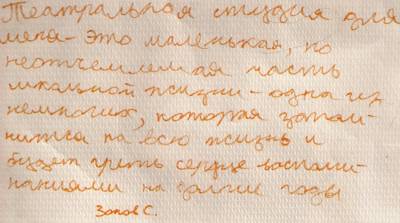 Театральная студия для
меня - это маленькая, но
неотъемлемая часть
школьной жизни - одна из
немногих, которая запом-
нится на всю жизнь и
будет греть сердце воспоми-
наниями на долгие годы
Зотов С.